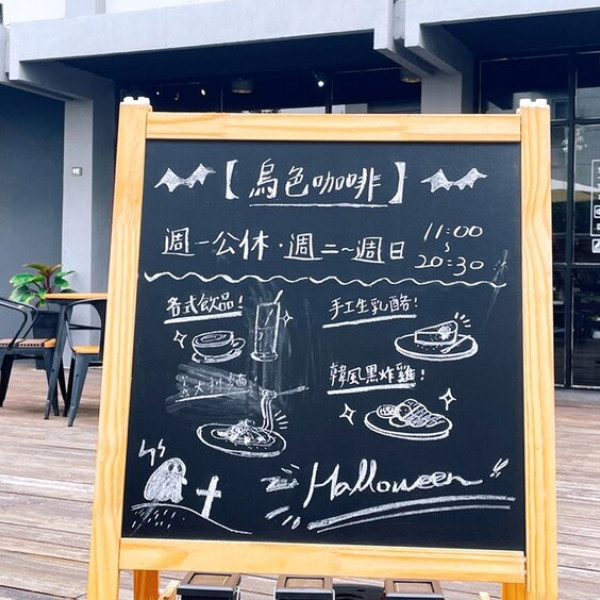 【鳥色咖啡】
週一公休·週二~週日 11:00
~
20:30
各式飲品!
手工生乳酪!
義大利麵
韓風黑炸雞!
Halloween